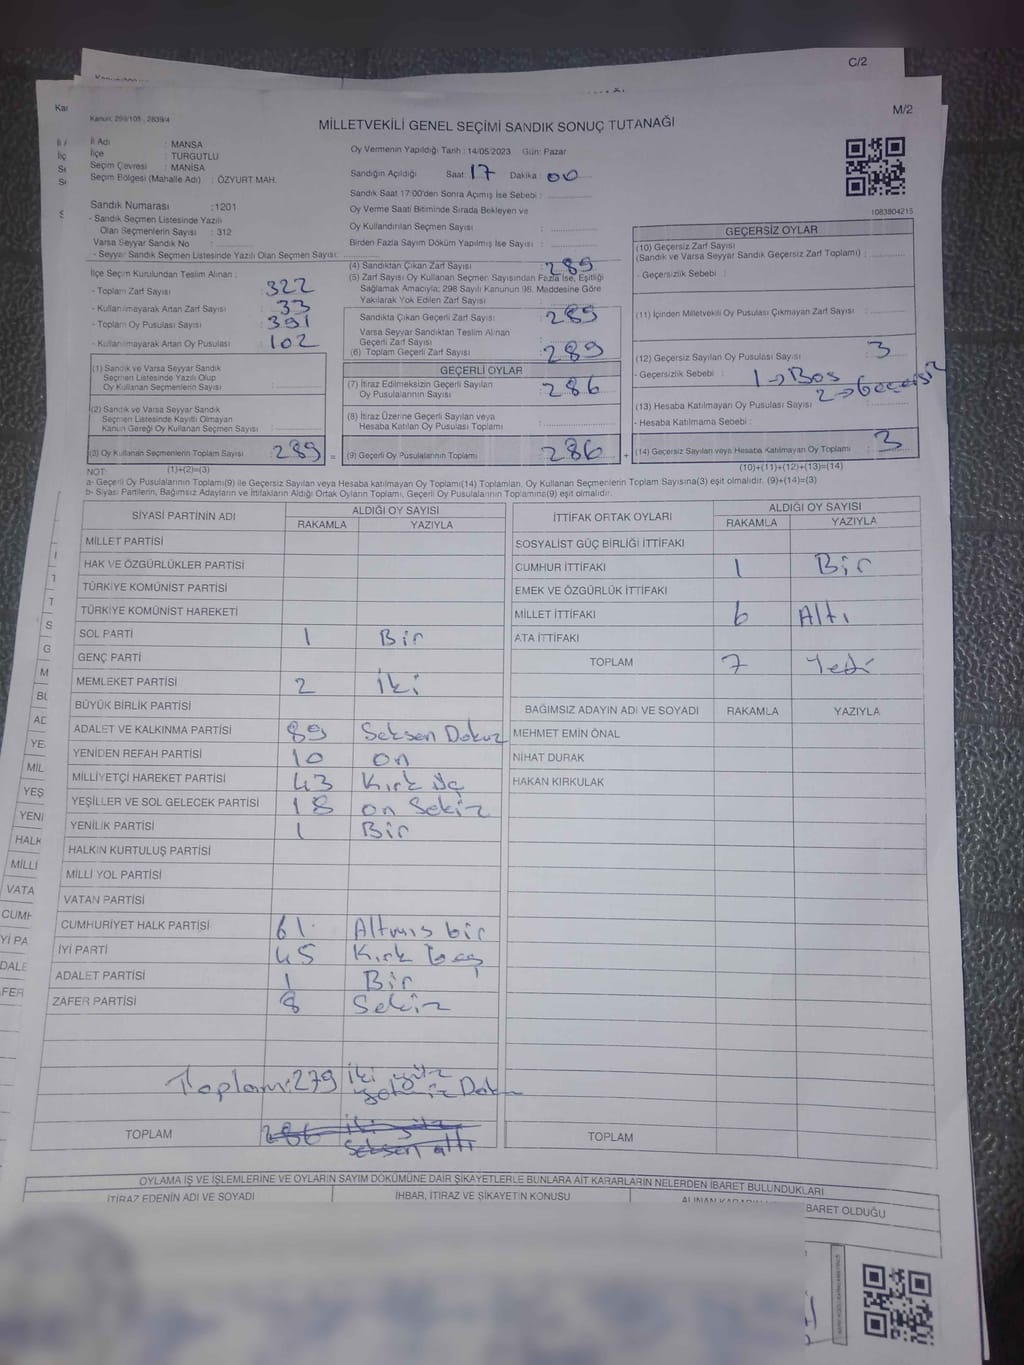 C/2
M/2
Kanun: 298/105 , 2839/4
MİLLETVEKİLİ GENEL SEÇİMİ SANDIK SONUÇ TUTANAĞI
İl Adı : MANİSA
İlçe : TURGUTLU
Seçim Çevresi : MANİSA
Seçim Bölgesi (Mahalle Adı) : ÖZYURT MAH.
Sandık Numarası :1201
- Sandık Seçmen Listesinde Yazılı
Olan Seçmenlerin Sayısı : 312
Varsa Seyyar Sandık No :
- Seyyar Sandık Seçmen Listesinde Yazılı Olan Seçmen Sayısı:
İlçe Seçim Kurulundan Teslim Alınan :
- Toplam Zarf Sayısı : 322
- Kullanılmayarak Artan Zarf Sayısı : 33
- Toplam Oy Pusulası Sayısı : 391
- Kullanılmayarak Artan Oy Pusulası : 102
(1) Sandık ve Varsa Seyyar Sandık
Seçmen Listesinde Yazılı Olup
Oy Kullanan Seçmenlerin Sayısı :
(2) Sandık ve Varsa Seyyar Sandık
Seçmen Listesinde Kayıtlı Olmayan
Kanun Gereği Oy Kullanan Seçmen Sayısı :
(3) Oy Kullanan Seçmenlerin Toplam Sayısı : 289
(1)+(2)=(3)
Oy Vermenin Yapıldığı Tarih : 14/05/2023 Gün: Pazar
Sandığın Açıldığı Saat: 17 Dakika: 00
Sandık Saat 17:00'den Sonra Açılmış İse Sebebi :
Oy Verme Saati Bitiminde Sırada Bekleyen ve
Oy Kullandırılan Seçmen Sayısı :
Birden Fazla Sayım Döküm Yapılmış İse Sayısı :
(4) Sandıktan Çıkan Zarf Sayısı : 289
(5) Zarf Sayısı Oy Kullanan Seçmen Sayısından Fazla İse, Eşitliği
Sağlamak Amacıyla; 298 Sayılı Kanunun 98. Maddesine Göre
Yakılarak Yok Edilen Zarf Sayısı :
Sandıkta Çıkan Geçerli Zarf Sayısı: : 289
Varsa Seyyar Sandıktan Teslim Alınan
Geçerli Zarf Sayısı :
(6) Toplam Geçerli Zarf Sayısı : 289
GEÇERLİ OYLAR
(7) İtiraz Edilmeksizin Geçerli Sayılan
Oy Pusulalarının Sayısı : 286
(8) İtiraz Üzerine Geçerli Sayılan veya
Hesaba Katılan Oy Pusulası Toplamı :
(9) Geçerli Oy Pusulalarının Toplamı : 286
1083804215
GEÇERSİZ OYLAR
(10) Geçersiz Zarf Sayısı
(Sandık ve Varsa Seyyar Sandık Geçersiz Zarf Toplamı) :
- Geçersizlik Sebebi :
(11) İçinden Milletvekili Oy Pusulası Çıkmayan Zarf Sayısı :
(12) Geçersiz Sayılan Oy Pusulası Sayısı : 3
- Geçersizlik Sebebi : 1→Boş
2→Geçersiz
(13) Hesaba Katılmayan Oy Pusulası Sayısı :
- Hesaba Katılmama Sebebi :
(14) Geçersiz Sayılan veya Hesaba Katılmayan Oy Toplamı : 3
(10)+(11)+(12)+(13)=(14)
NOT:
a- Geçerli Oy Pusulalarının Toplamı(9) ile Geçersiz Sayılan veya Hesaba Katılmayan Oy Toplamı(14) Toplamları, Oy Kullanan Seçmenlerin Toplam Sayısına(3) eşit olmalıdır. (9)+(14)=(3)
b- Siyasi Partilerin, Bağımsız Adayların ve İttifakların Aldığı Ortak Oyların Toplamı, Geçerli Oy Pusulalarının Toplamına(9) eşit olmalıdır.
SİYASİ PARTİNİN ADI ALDIĞI OY SAYISI
RAKAMLA YAZIYLA
MİLLET PARTİSİ
HAK VE ÖZGÜRLÜKLER PARTİSİ
TÜRKİYE KOMÜNİST PARTİSİ
TÜRKİYE KOMÜNİST HAREKETİ
SOL PARTİ 1 Bir
GENÇ PARTİ
MEMLEKET PARTİSİ 2 İki
BÜYÜK BİRLİK PARTİSİ
ADALET VE KALKINMA PARTİSİ 89 Seksen Dokuz
YENİDEN REFAH PARTİSİ 10 on
MİLLİYETÇİ HAREKET PARTİSİ 43 Kırk üç
YEŞİLLER VE SOL GELECEK PARTİSİ 18 on Sekiz
YENİLİK PARTİSİ 1 Bir
HALKIN KURTULUŞ PARTİSİ
MİLLİ YOL PARTİSİ
VATAN PARTİSİ
CUMHURİYET HALK PARTİSİ 61 Altmış bir
İYİ PARTİ 45 Kırk beş
ADALET PARTİSİ 1 Bir
ZAFER PARTİSİ 8 Sekiz
Toplam: 279 İki yüz
TOPLAM 286 İki yüz
Seksen altı
İTTİFAK ORTAK OYLARI ALDIĞI OY SAYISI
RAKAMLA YAZIYLA
SOSYALİST GÜÇ BİRLİĞİ İTTİFAKI
CUMHUR İTTİFAKI 1 Bir
EMEK VE ÖZGÜRLÜK İTTİFAKI
MİLLET İTTİFAKI 6 Altı
ATA İTTİFAKI
TOPLAM 7 Yedi
BAĞIMSIZ ADAYIN ADI VE SOYADI RAKAMLA YAZIYLA
MEHMET EMİN ÖNAL
NİHAT DURAK
HAKAN KIRKULAK
TOPLAM
OYLAMA İŞ VE İŞLEMLERİNE VE OYLARIN SAYIM DÖKÜMÜNE DAİR ŞİKAYETLERLE BUNLARA AİT KARARLARIN NELERDEN İBARET BULUNDUKLARI
İTİRAZ EDENİN ADI VE SOYADI İHBAR, İTİRAZ VE ŞİKAYETİN KONUSU
BARET OLDUĞU